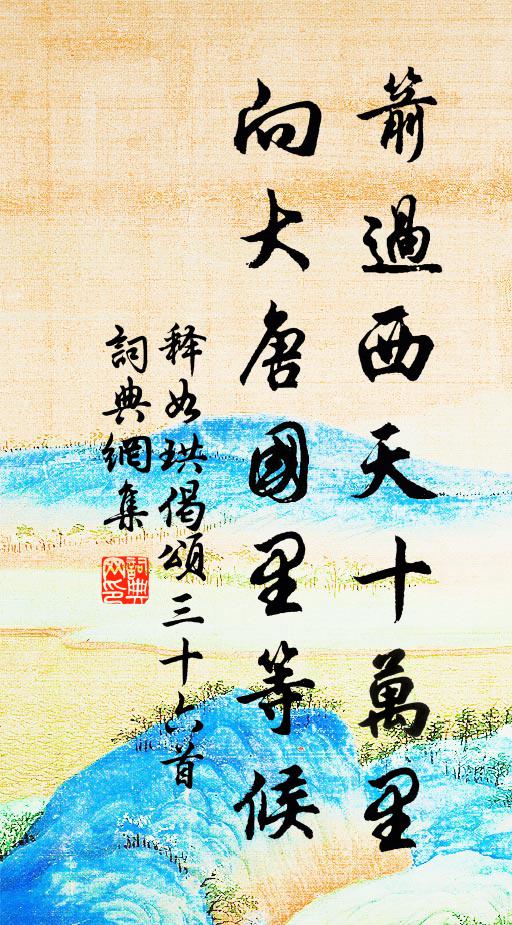 箭過西天十萬里
向大唐國里等候
释如珙偈頌三十六首
詞典網集
詞典
网印